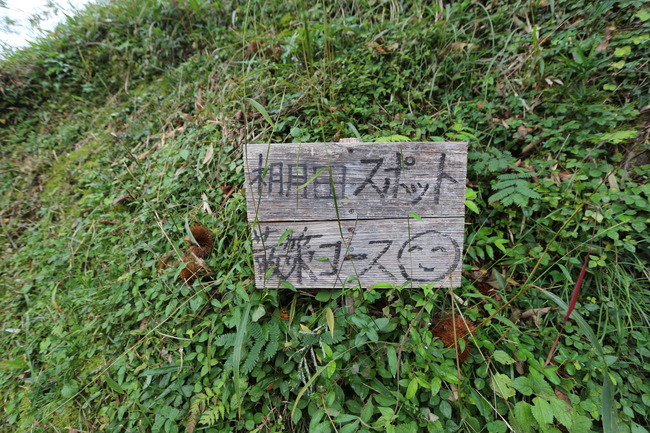 棚田スポット
散策コース